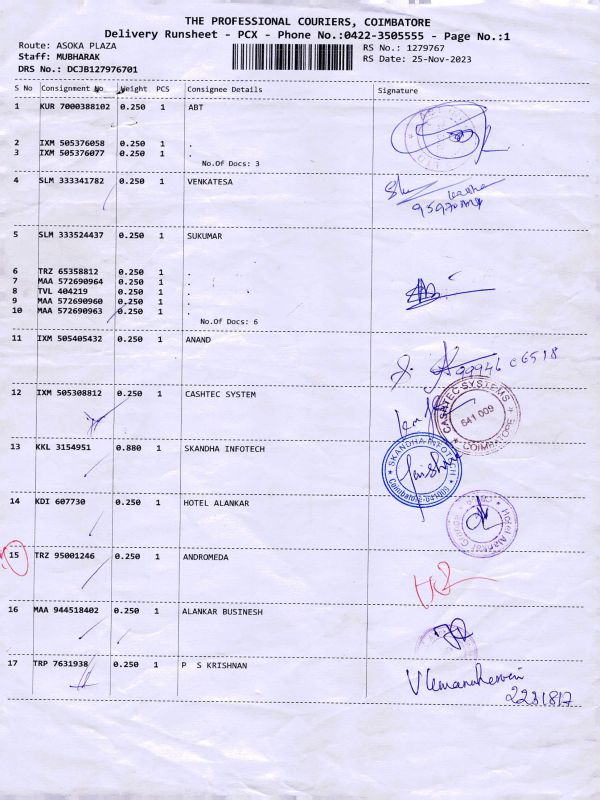 THE PROFESSIONAL COURIERS, COIMBATORE
Delivery Runsheet - PCX - Phone No.:0422-3505555 - Page No.:1
Route: ASOKA PLAZA
RS No.: 1279767
Staff: MUBHARAK
RS Date: 25-Nov-2023
DRS No.: DCJB127976701
S No Consignment No Weight PCS Consignee Details Signature
1 KUR 7000388102 0.250 1 ABT
2 IXM 505376058 0.250 1 .
3 IXM 505376077 0.250 1 .
No.Of Docs: 3
4 SLM 333341782 0.250 1 VENKATESA
5 SLM 333524437 0.250 1 SUKUMAR
6 TRZ 65358812 0.250 1 .
7 MAA 572690964 0.250 1 .
8 TVL 404219 0.250 1 .
9 MAA 572690960 0.250 1 .
10 MAA 572690963 0.250 1 .
No.Of Docs: 6
11 IXM 505405432 0.250 1 ANAND
12 IXM 505308812 0.250 1 CASHTEC SYSTEM
CASHTEC SYSTEMS
641 009
COIMBATORE
13 KKL 3154951 0.880 1 SKANDHA INFOTECH
SKANDHA INFOTECH
14 KDI 607730 0.250 1 HOTEL ALANKAR
15 TRZ 95001246 0.250 1 ANDROMEDA
16 MAA 944518402 0.250 1 ALANKAR BUSINESH
17 TRP 7631938 0.250 1 P S KRISHNAN
2231817